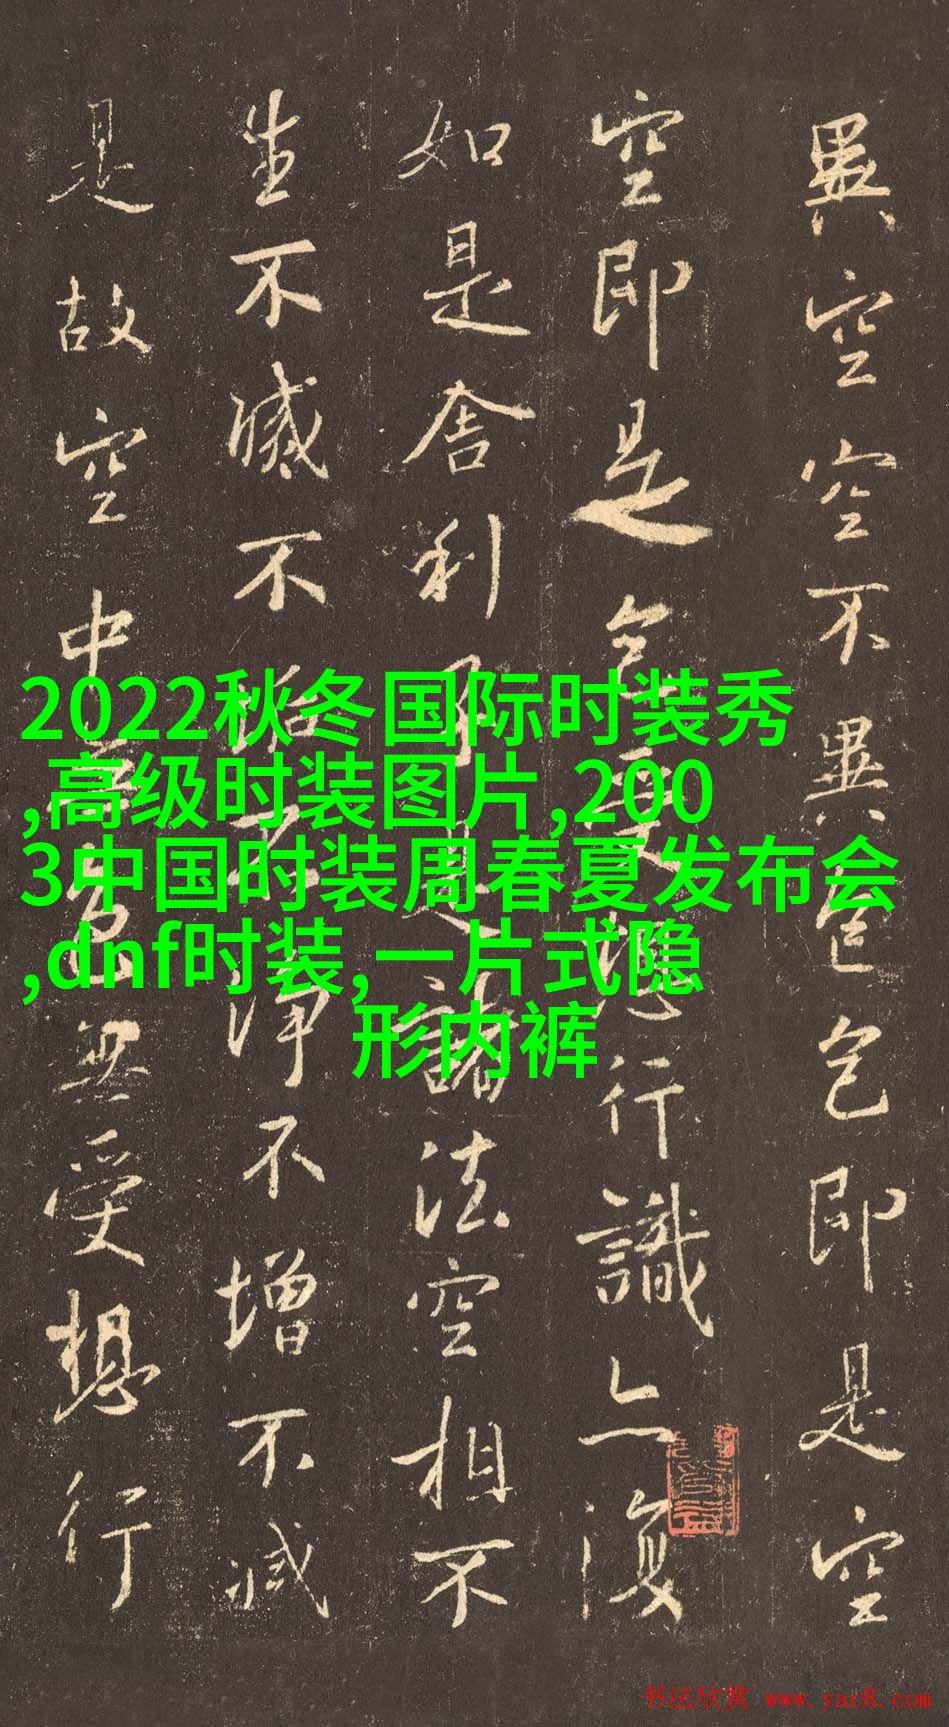 異空空不異色色即是空
空即是色受想行識亦復
如是舍利子是諸法空相不
生不滅不垢不淨不增不減
是故空中無色無受想行
2022秋冬国际时装秀
,高级时装图片,200
3中国时装周春夏发布会
,dnf时装,一片式隐
形内裤
书法欣赏 www.yac8.com